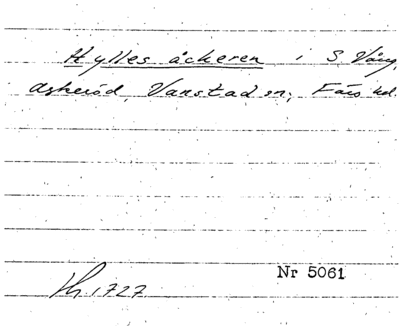 Hylles åckeren i S. Vång,
Askeröd, Vanstad sn, Färs hd.
Nr 5061
Lh, 1727